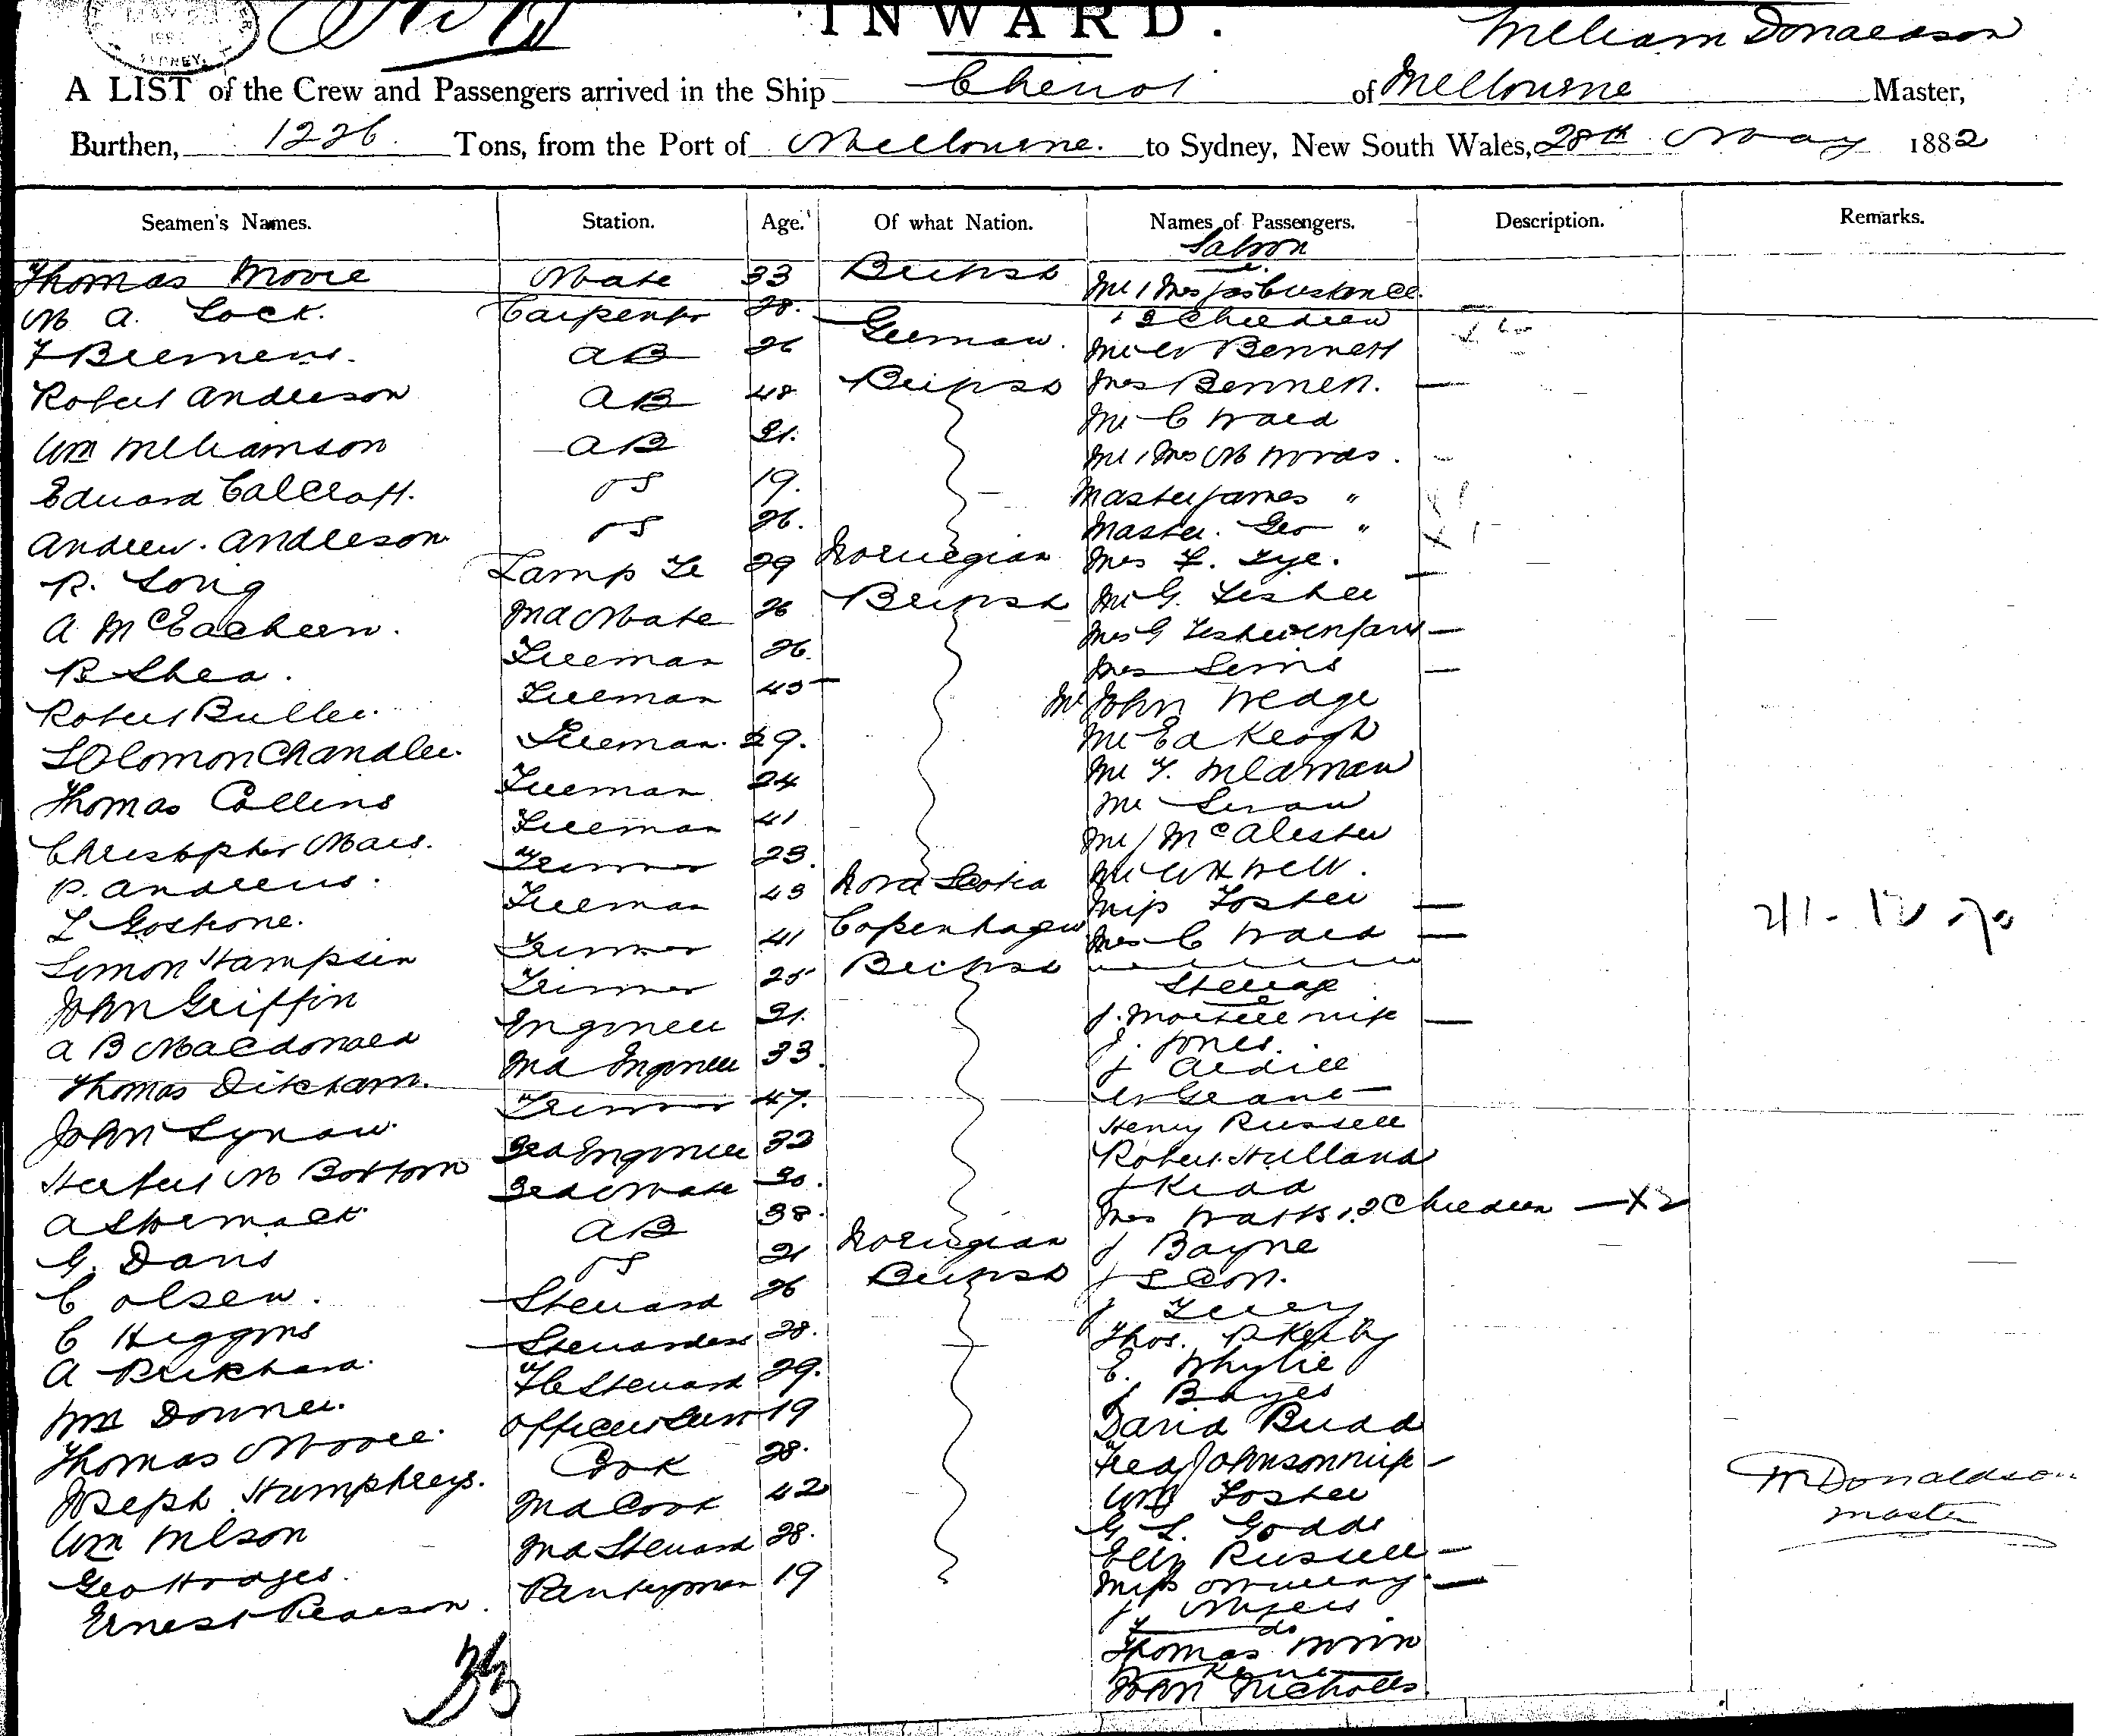 INWARD.
William Donaldson
A LIST of the Crew and Passengers arrived in the Ship Cheviot of Melbourne Master,
Burthen, 1226 Tons, from the Port of Melbourne. to Sydney, New South Wales, 28th May 1882
Seamen's Names. Station. Age. Of what Nation. Names of Passengers. Description. Remarks.
Saloon
Thomas Moore Mate 33 British Mr & Mrs
M A. Lock. Carpenter 28. & 2 Children
F Bremens. AB 26 German. Mr W Bennett
Robert Anderson AB 48 British Mrs Bennett. —
Wm Williamson AB 21. Mr C Ward
Mr & Mrs M Woods.
Edward Calcraft. OS 19. Master James "
Andrew. Anderson OS 26. Master. Geo "
R. Long Lamp Tr 29 Norwegian Mrs F. Tye. —
A McEachern. 2nd Mate 26 British Mr G. Fisher
Mrs G Fisher & Infant —
R Shea. Fireman 26. Mrs Lewis —
Robert Butler. Fireman 45 Mr John Wedge
Solomon Chandler. Fireman. 29. Mr Ed Keogh
Thomas Collins Fireman 24 Mr F. Wildman
Christopher Mars. Fireman 41 Mr
P. Andrews. Trimmer 23. Mr J McAlester
L Fireman 43 Nova Scotia Mr W H Well.
Simon Hampsen Trimmer 41 Copenhagen Miss Foster —
John Griffin Trimmer 25 British Mrs C Ward —
Steerage
A B Macdonald Engineer 31. J. & wife —
Thomas Ditcham. 2nd Engineer 33. J. Jones.
John Lynaw. Trimmer 47. J
W Grant
Herbert M Bottom 3rd Engineer 32 Henry Russell
Robert Hulland
3rd Mate 30. J Kidd
G. Davis AB 38. Mrs Watts & 2 Children — X 2
C Olsen. OS 21 Norwegian J Bayne
C Higgins Steward 26 British J Scott.
A Prickhard. Stewardess 28. J Terry
Wm Downer. F C Steward 29. Thos.
E. Whylie
J Bayes
Thomas Moore. Officers Servt 19 David Budd
Joseph Humphreys. Cook 28. Fred Johnson & wife —
Wm Wilson 2nd Cook 42 Wm Foster
Geo Hodges. 2nd Steward 28. G L. Godds
Ernest Pearson. Pantryman 19 Eliz Russell —
Miss Murray —
J Myers
do
Thomas
John Nicholls.
W Donaldson
Master
36